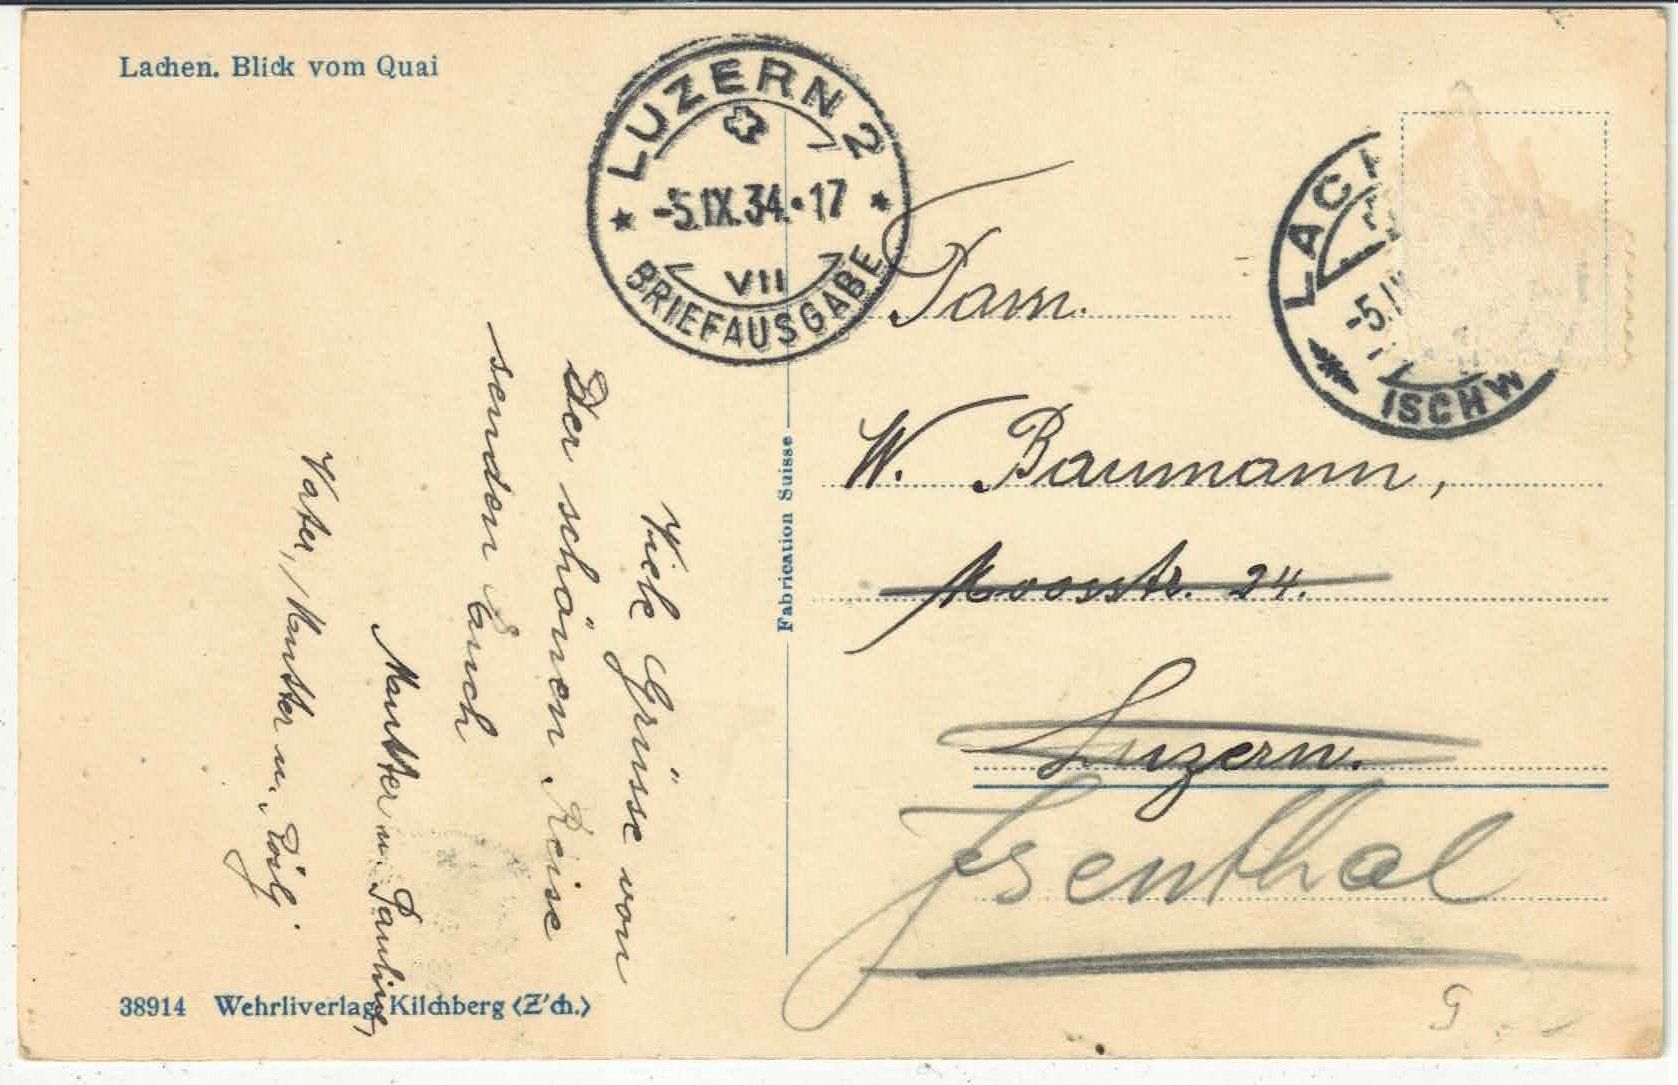 Lachen. Blick vom Quai
LUZERN 2
-5.IX.34.-17
VII
BRIEFAUSGABE
LACH
-5.IX
(SCHW
Fam.
W. Baumann,
Moosstr. 24.
Luzern.
Isenthal
Viele Grüsse von
Der schönen Reise
senden Euch
Mutter u. Pauline,
Vater, Mutter u.
Fabrication Suisse
38914 Wehrliverlag, Kilchberg (Z'ch.)